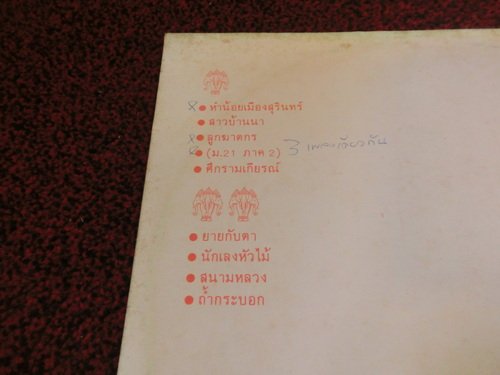 × ● หำน้อยเมืองสุรินทร์
● สาวบ้านนา
× ● ลูกฆาตกร
× ● (ม.21 ภาค 2) 3 เพลงเดียวกัน
● ศึกรามเกียรณ์
● ยายกับตา
● นักเลงหัวไม้
● สนามหลวง
● ถ้ำกระบอก